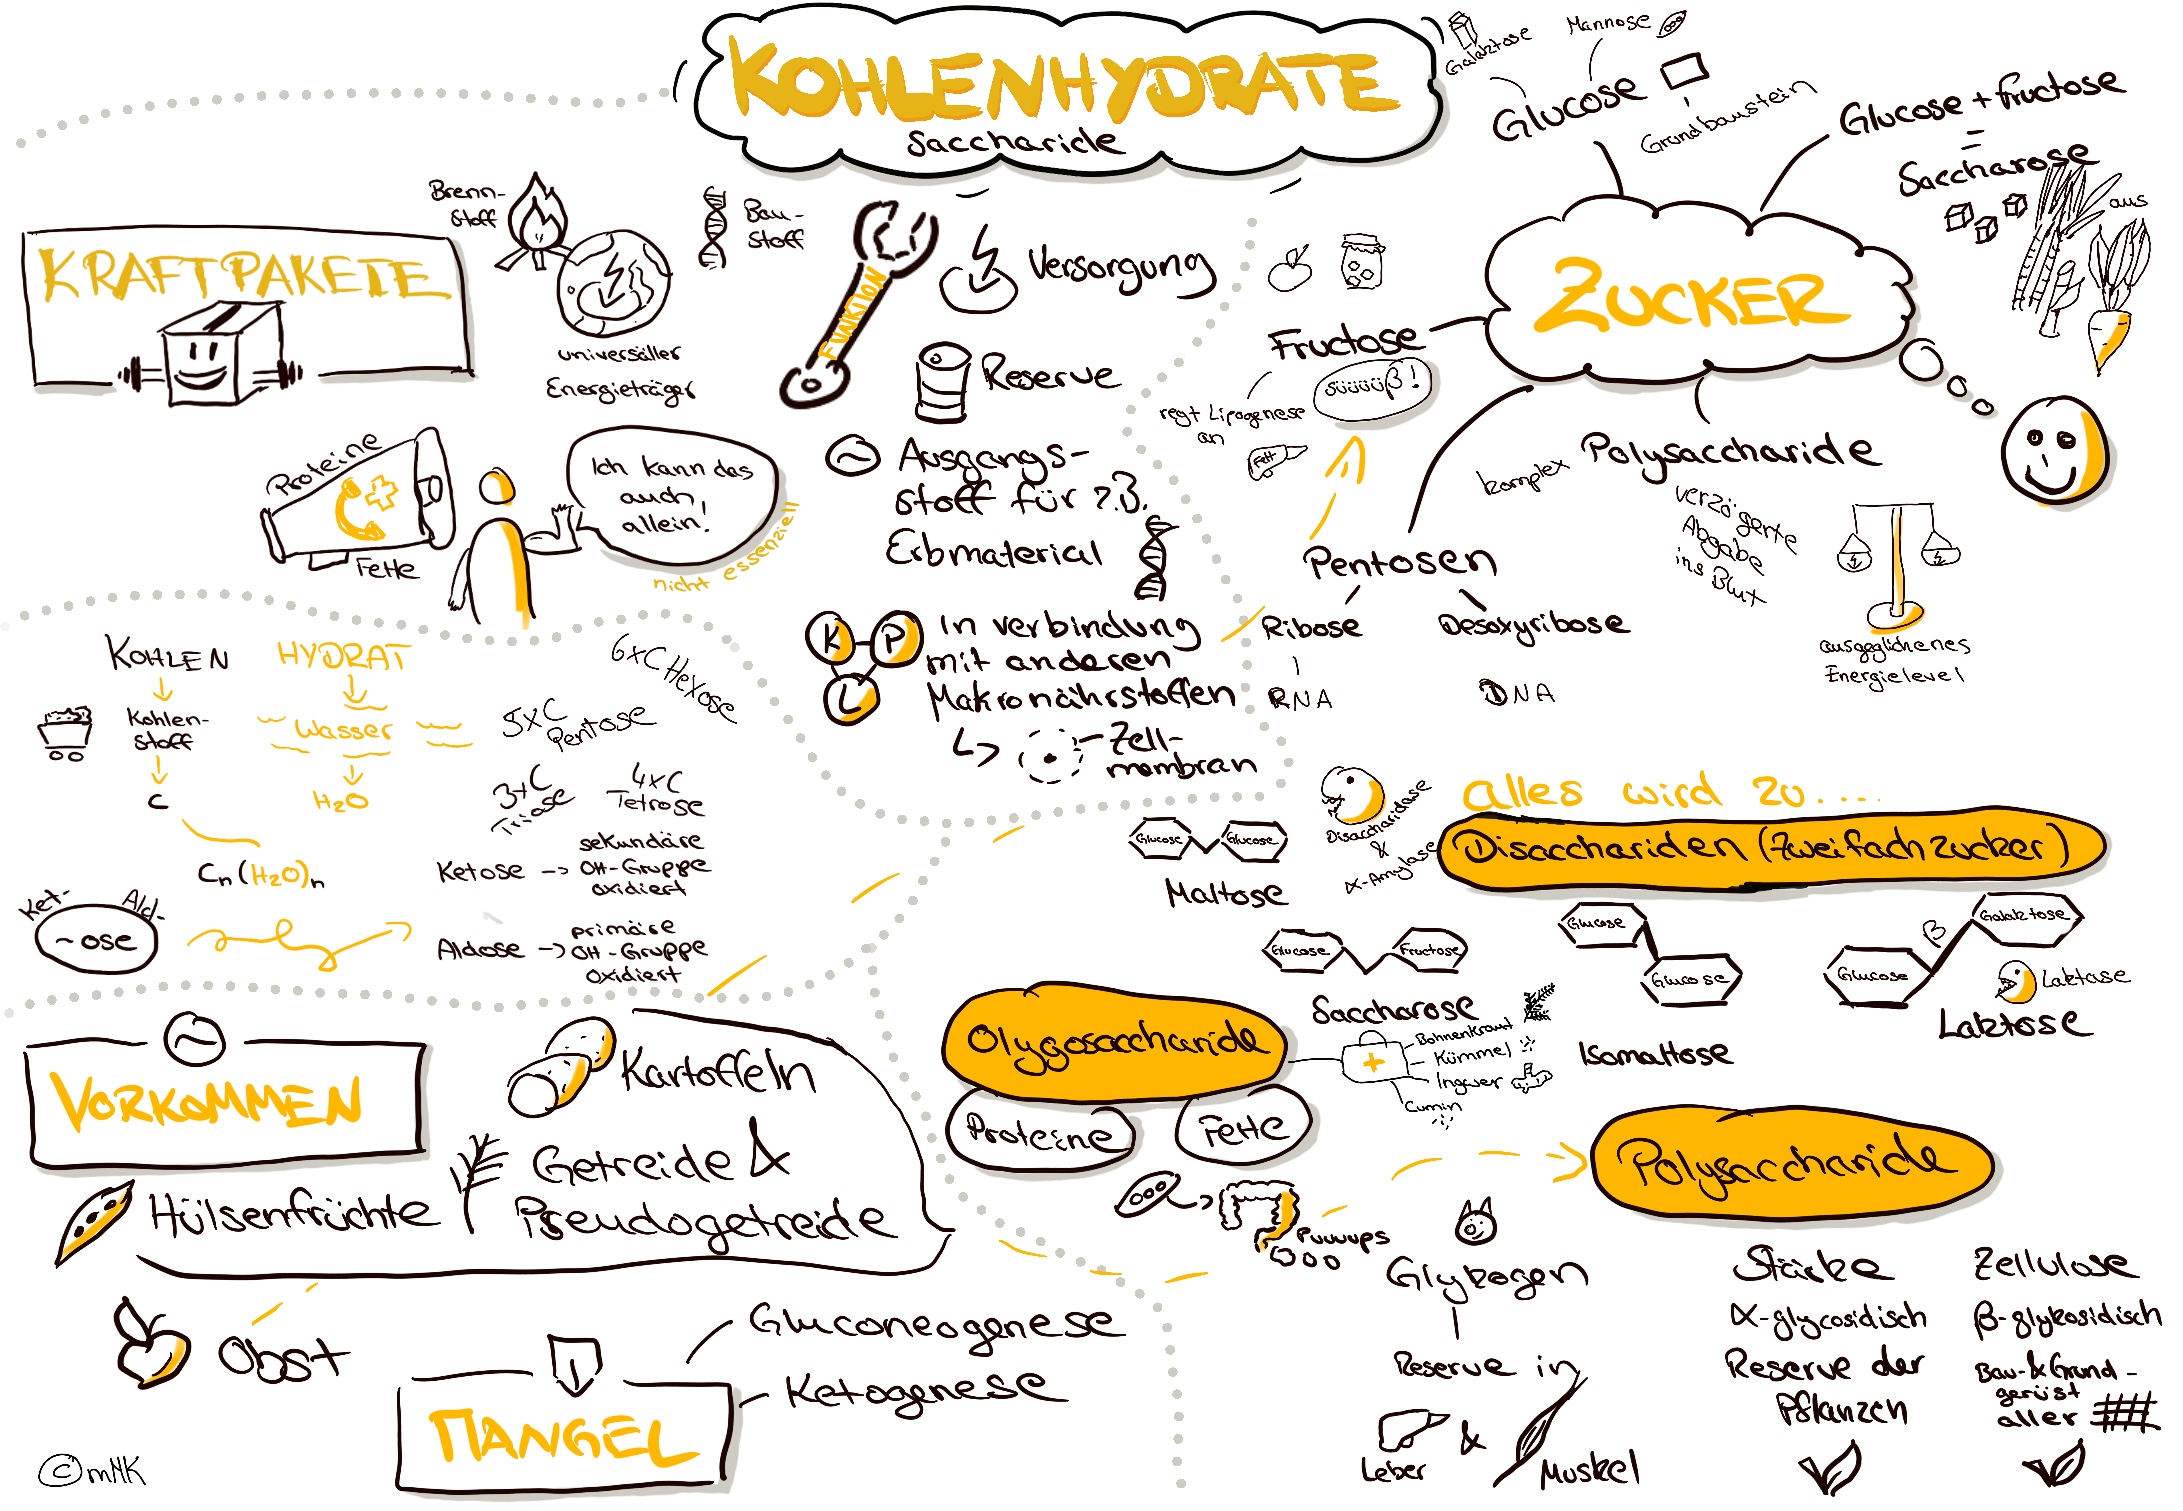 KOHLENHYDRATE
Saccharide
KRAFTPAKETE
Brenn-
stoff
universäller
Energieträger
Bau-
stoff
Proteine
Fette
Ich kann das
auch,
allein!
nicht essenziell
FUNKTION
Versorgung
Reserve
Ausgangs-
stoff für z.B.
Erbmaterial
K
P
L
In verbindung
mit anderen
Makronährstoffen
Zell-
membran
Galaktose
Mannose
Glucose
Grundbaustein
Glucose + Fructose
=
Saccharose
aus
ZUCKER
Fructose
süüüüß!
regt Lipogenese
an
Fett
Polysaccharide
komplex
verzögerte
Abgabe
ins Blut
ausgeglichenes
Energielevel
Pentosen
Ribose
RNA
Desoxyribose
DNA
KOHLEN
Kohlen-
stoff
C
HYDRAT
Wasser
H2O
Cn(H2O)n
6xC Hexose
5xC
Pentose
3xC
Triose
4xC
Tetrose
Ket-
Ald-
~ose
Ketose -> sekundäre
OH-Gruppe
oxidiert
Aldose -> primäre
OH-Gruppe
oxidiert
alles wird zu....
Disacchariden (Zweifachzucker)
Disaccharidase
&
α-Amylase
Glucose
Glucose
Maltose
Glucose
Fructose
Saccharose
Glucose
Glucose
Isomaltose
Glucose
β
Galaktose
Laktase
Laktose
Olygosaccharide
Proteine
Fette
Bohnenkraut
Kümmel
Ingwer
Cumin
Puuuups
Polysaccharide
Glykogen
Reserve in
Leber
&
Muskel
Stärke
α-glycosidisch
Reserve der
Pflanzen
Zellulose
β-glykosidisch
Bau-&Grund-
gerüst
aller
VORKOMMEN
Kartoffeln
Getreide &
Pseudogetreide
Hülsenfrüchte
Obst
MANGEL
Gluconeogenese
Ketogenese
© mMK